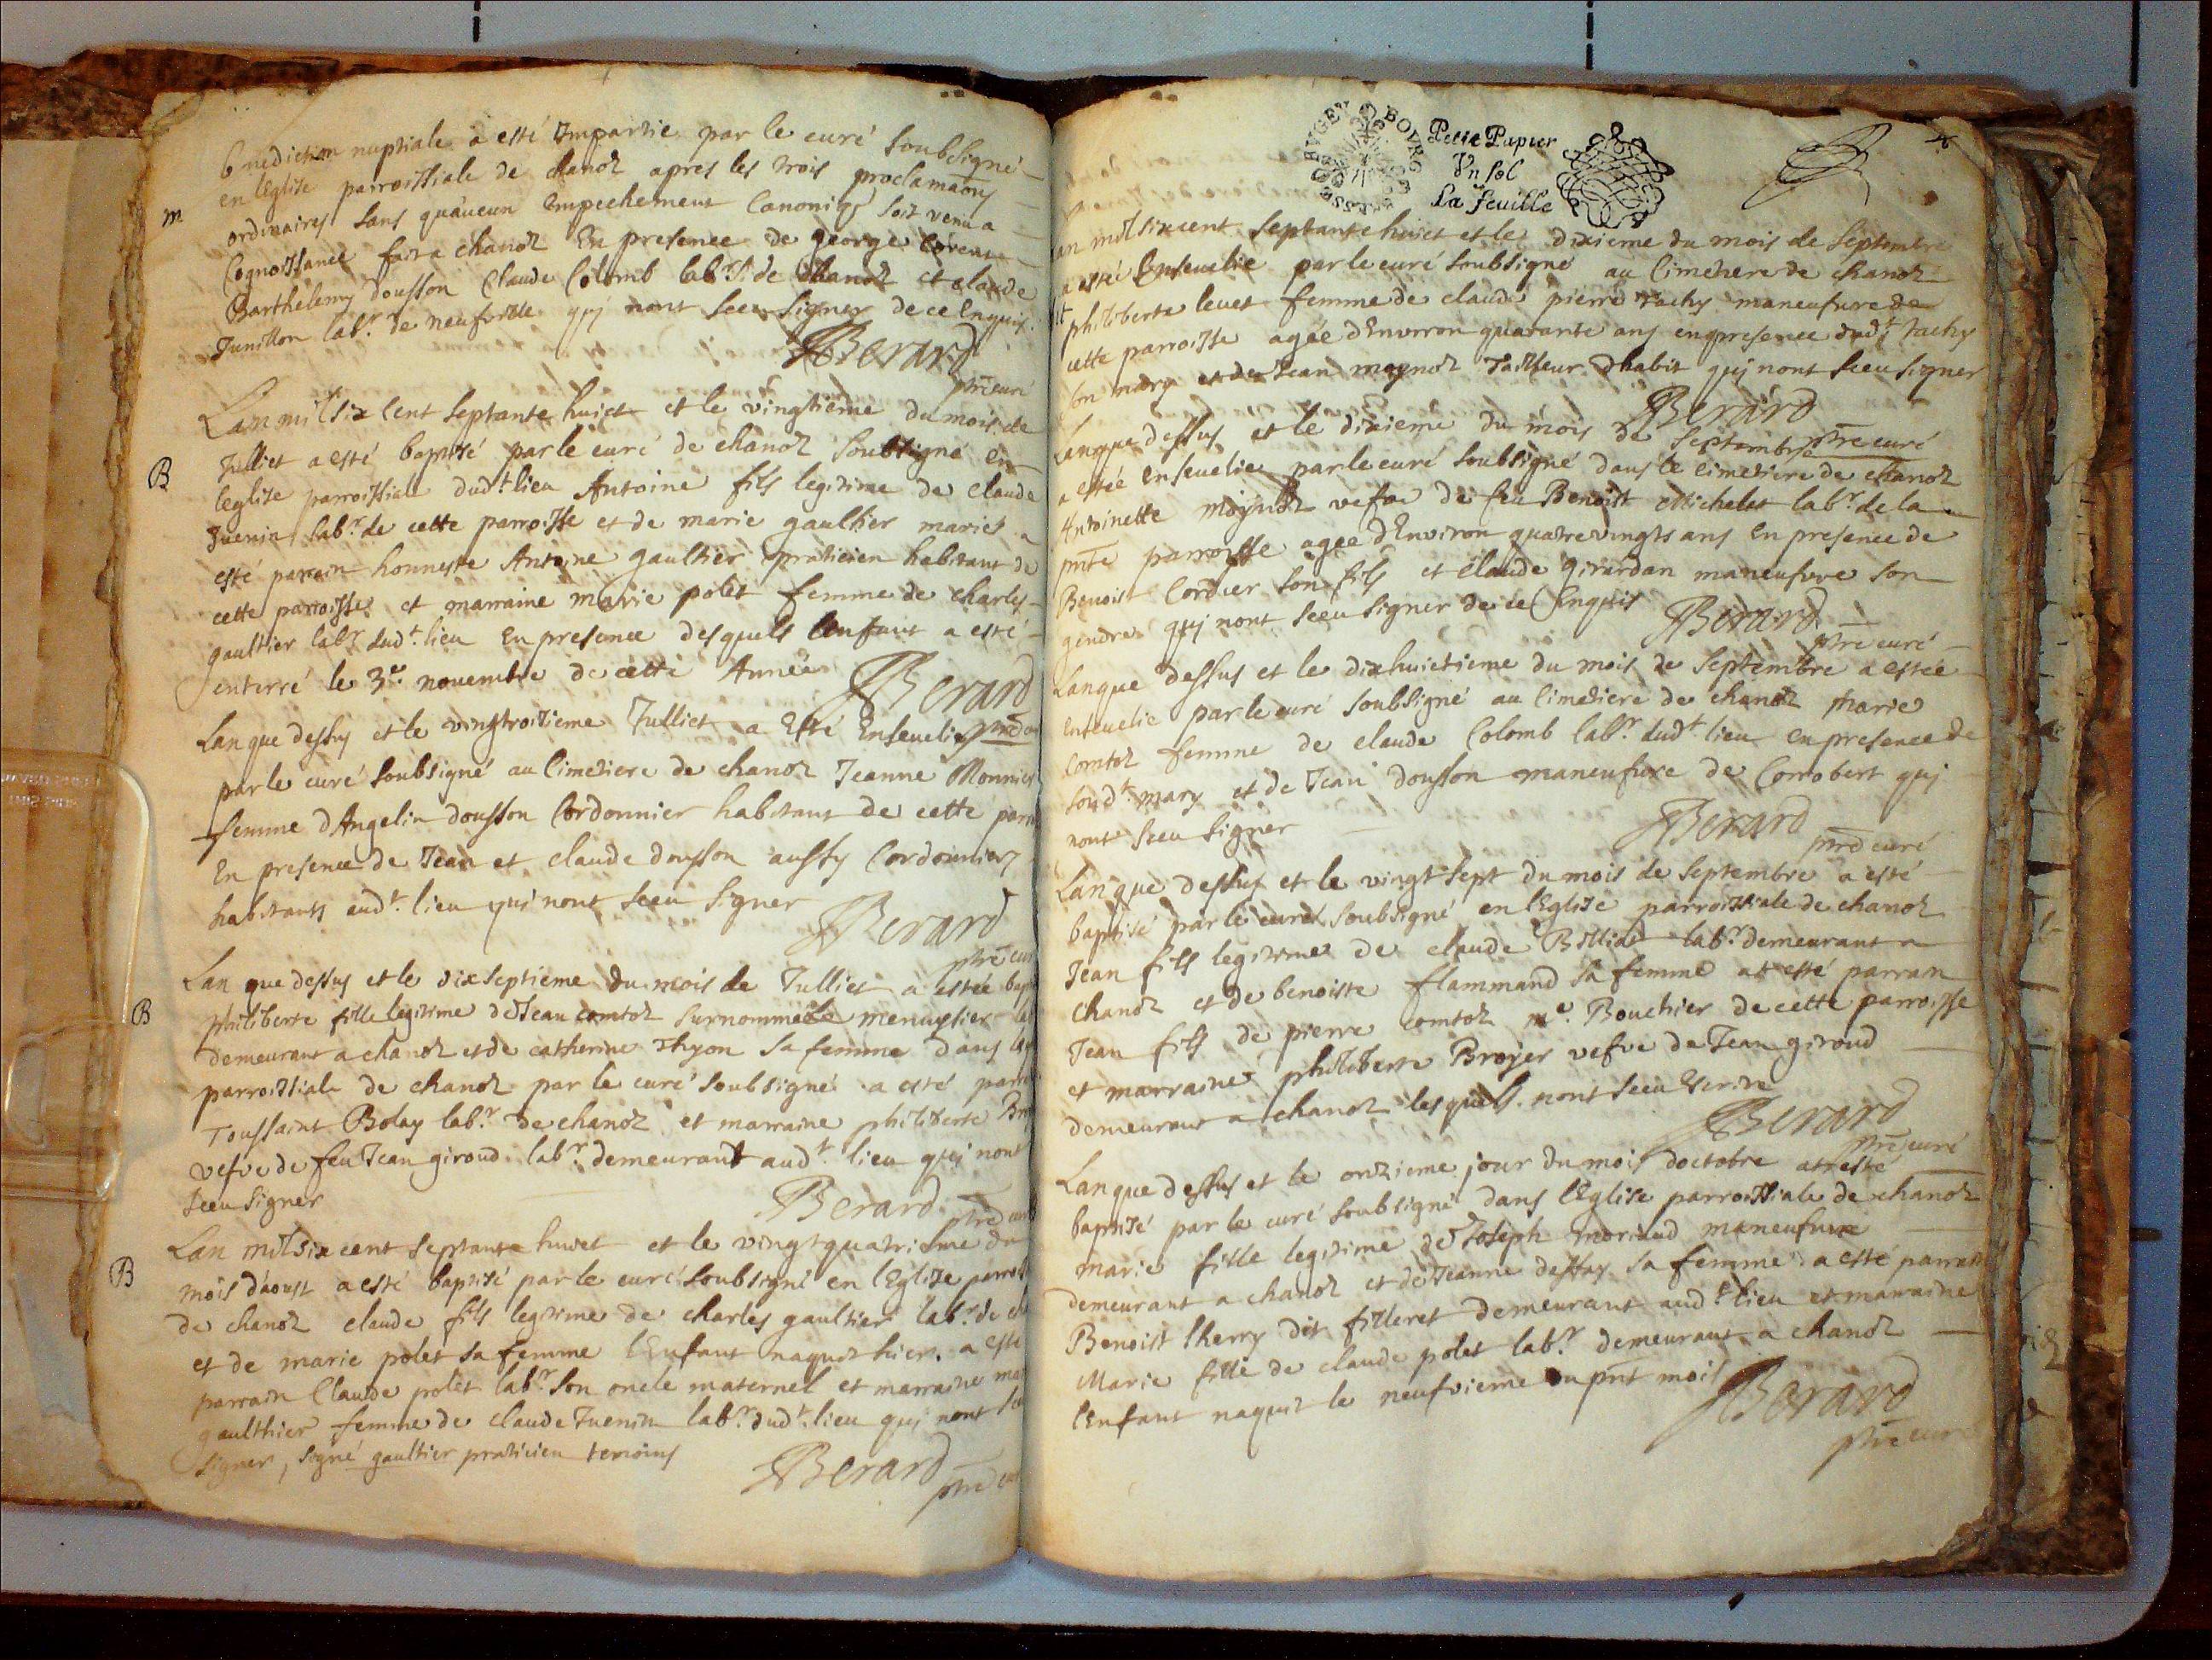 benediction nuptiale a esté Impartie par le curé soubsigné
en lEglise parroissiale de chanoz apres les trois proclamaons
m
ordinaires sans quaucun Empechement Canoniq soit venu a
Cognoissance fait a chanoz En presence de george
Barthelemy dousson Claude Colomb labrs de chanoz et claude
Junillon labr. de neufville qui nont sceu signer de ce Enquis.
Berard
ptre curé
Lan mil six Cent septante huict et le vingtieme du mois de
Julliet a esté baptisé par le curé de chanoz soubsigné en
B
leglise parroissiale dudt. lieu Antoine fils legitime de claude
Juenin labr. de cette parroisse et de marie gaultier mariés a
esté parrain honneste Antoine gaultier praticien habitant de
cette parroisse et marraine marie polet femme de charles
gaultier labr dudt. lieu En presence desquels lenfant a esté
enterré le 3e. novembre de cette Année
Berard
Lan que dessus et le vingtroisieme Julliet a Esté Ensevelie
par le curé soubsigné au Cimetiere de chanoz Jeanne Monnier
femme dAngelin dousson Cordonnier habitant de cette
En presence de Jean et claude dousson aussy Cordonniers
habitants audt. lieu qui nont sceu signer
Berard
ptre
Lan que dessus et le dixseptieme du mois de Julliet a estée
B
philiberte fille legitime de Jean comtoz surnommé le menuysier
demeurant a chanoz et de catherine Thyon sa femme dans
parroissiale de chanoz par le curé soubsigné a esté
Toussaint Bolay labr. de chanoz et marraine philiberte
vefve de feu Jean giroud labr. demeurant audt. lieu qui nont
sceu signer
Berard
ptre
Lan mil six cent septante huict et le vingt quatrieme du
B
mois daoust a esté baptisé par le curé soubsigné en lEglise
de chanoz claude fils legitime de charles gaultier labr. de
et de marie polet sa femme lEnfant naquit hier. a esté
parrain Claude polet labr son oncle maternel et marraine
gaulthier femme de claude Juenin labr. dudt. lieu qui nont
signer, signé gaultier praticien temoins
Berard
ptre
BOURG
BUGEY
BRESSE
Petit Papier
Un sol
La feuille
an mil six cent septante huict et le dixieme du mois de Septembre
a esté Ensevelie par le curé soubsigné au Cimetiere de chanoz
philiberte levet femme de claude pierre tachy maneufvre de
cette parroisse agée dEnviron quarante ans en presence dudt tachy
son mary et de Jean moynoz Tailleur dhabit qui nont sceu signer
Berard
ptre curé
Lan que dessus et le dixieme du mois de Septembre
a estée ensevelie par le curé soubsigné dans le cimetiere de chanoz
Antoinette moynoz vefve de feu Benoist Michelet labr. de la
pnte parroisse agée dEnviron quatrevingts ans En presence de
Benoist Cordier son fils et claude girardan maneufvre son
gendre qui nont sceu signer de ce Enquis
Berard
ptre curé
Lan que dessus et le dixhuictieme du mois de Septembre a estée
Ensevelie par le curé soubsigné au Cimetiere de chanoz Marie
comtoz femme de claude Colomb labr. dudt. lieu en presence de
sondt. mary et de Jean dousson maneufvre de Corrobert qui
nont sceu signer
Berard
ptre curé
Lan que dessus et le vingt sept du mois de Septembre a esté
baptisé par le curé soubsigné en lEglise parroissiale de chanoz
Jean fils legitime de claude Billiot labr. demeurant a
chanoz et de benoiste flammand sa femme at esté parrain
Jean fils de pierre comtoz me. Bouchier de cette parroisse
et marraine philiberte Broyer vefve de Jean giroud
demeurant a chanoz lesquels nont sceu Escrire
Berard
ptre curé
Lan que dessus et le onzieme jour du mois doctobre at esté
baptisé par le curé soubsigné dans lEglise parroissiale de chanoz
marie fille legitime de Joseph moriaud maneufvre
demeurant a chanoz et de Jeanne dessay sa femme a esté parrain
Benoist lherry dit filleret demeurant audt. lieu et marraine
Marie fille de claude polet labr. demeurant a chanoz
lEnfant naquit le neufvieme du pnt mois
Berard
ptre curé